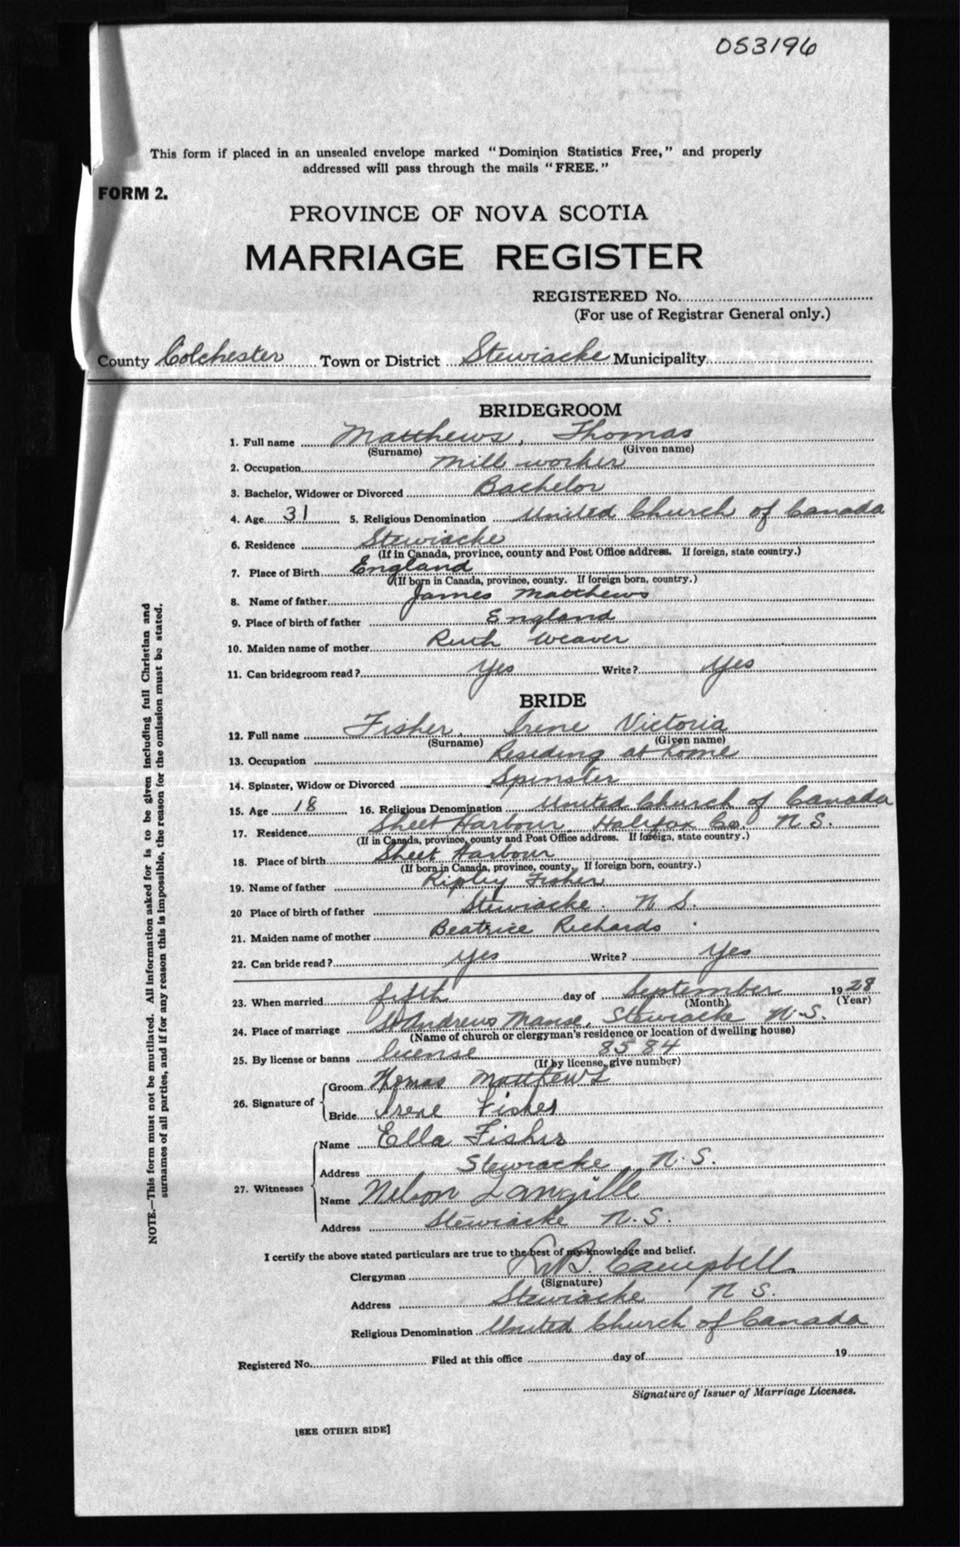 053196
This form if placed in an unsealed envelope marked "Dominion Statistics Free," and properly
addressed will pass through the mails "FREE."
FORM 2.
PROVINCE OF NOVA SCOTIA
MARRIAGE REGISTER
REGISTERED No.
(For use of Registrar General only.)
County Colchester Town or District Stewiacke Municipality
BRIDEGROOM
1. Full name Matthews, Thomas
(Surname) (Given name)
2. Occupation Mill worker
3. Bachelor, Widower or Divorced Bachelor
4. Age 31 5. Religious Denomination United Church of Canada
6. Residence Stewiacke
(If in Canada, province, county and Post Office address. If foreign, state country.)
7. Place of Birth England
(If born in Canada, province, county. If foreign born, country.)
8. Name of father James Matthews
9. Place of birth of father England
10. Maiden name of mother Ruth Weaver
11. Can bridegroom read? Yes Write? Yes
BRIDE
12. Full name Fisher, Irene Victoria
(Surname) (Given name)
13. Occupation Residing at home
14. Spinster, Widow or Divorced Spinster
15. Age 18 16. Religious Denomination United Church of Canada
17. Residence Sheet Harbour, Halifax Co. N.S.
(If in Canada, province, county and Post Office address. If foreign, state country.)
18. Place of birth Sheet Harbour
(If born in Canada, province, county. If foreign born, country.)
19. Name of father Ripley Fisher
20 Place of birth of father Stewiacke. N S.
21. Maiden name of mother Beatrice Richards
22. Can bride read? Yes Write? Yes
23. When married fifth day of September 1928
(Month) (Year)
24. Place of marriage St Andrews Manse, Stewiacke N.S.
(Name of church or clergyman's residence or location of dwelling house)
25. By license or banns license 8584
(If by license, give number)
26. Signature of Groom Thomas Matthews
Bride Irene Fisher
27. Witnesses Name Ella Fisher
Address Stewiacke N.S.
Name Nelson Langille
Address Stewiacke N.S.
I certify the above stated particulars are true to the best of my knowledge and belief.
Clergyman Campbell
(Signature)
Address Stewiacke N S.
Religious Denomination United Church of Canada
Registered No. Filed at this office day of 19
Signature of Issuer of Marriage Licenses.
[SEE OTHER SIDE]
NOTE.—This form must not be mutilated. All information asked for is to be given including full Christian and
surnames of all parties, and if for any reason this is impossible, the reason for the omission must be stated.